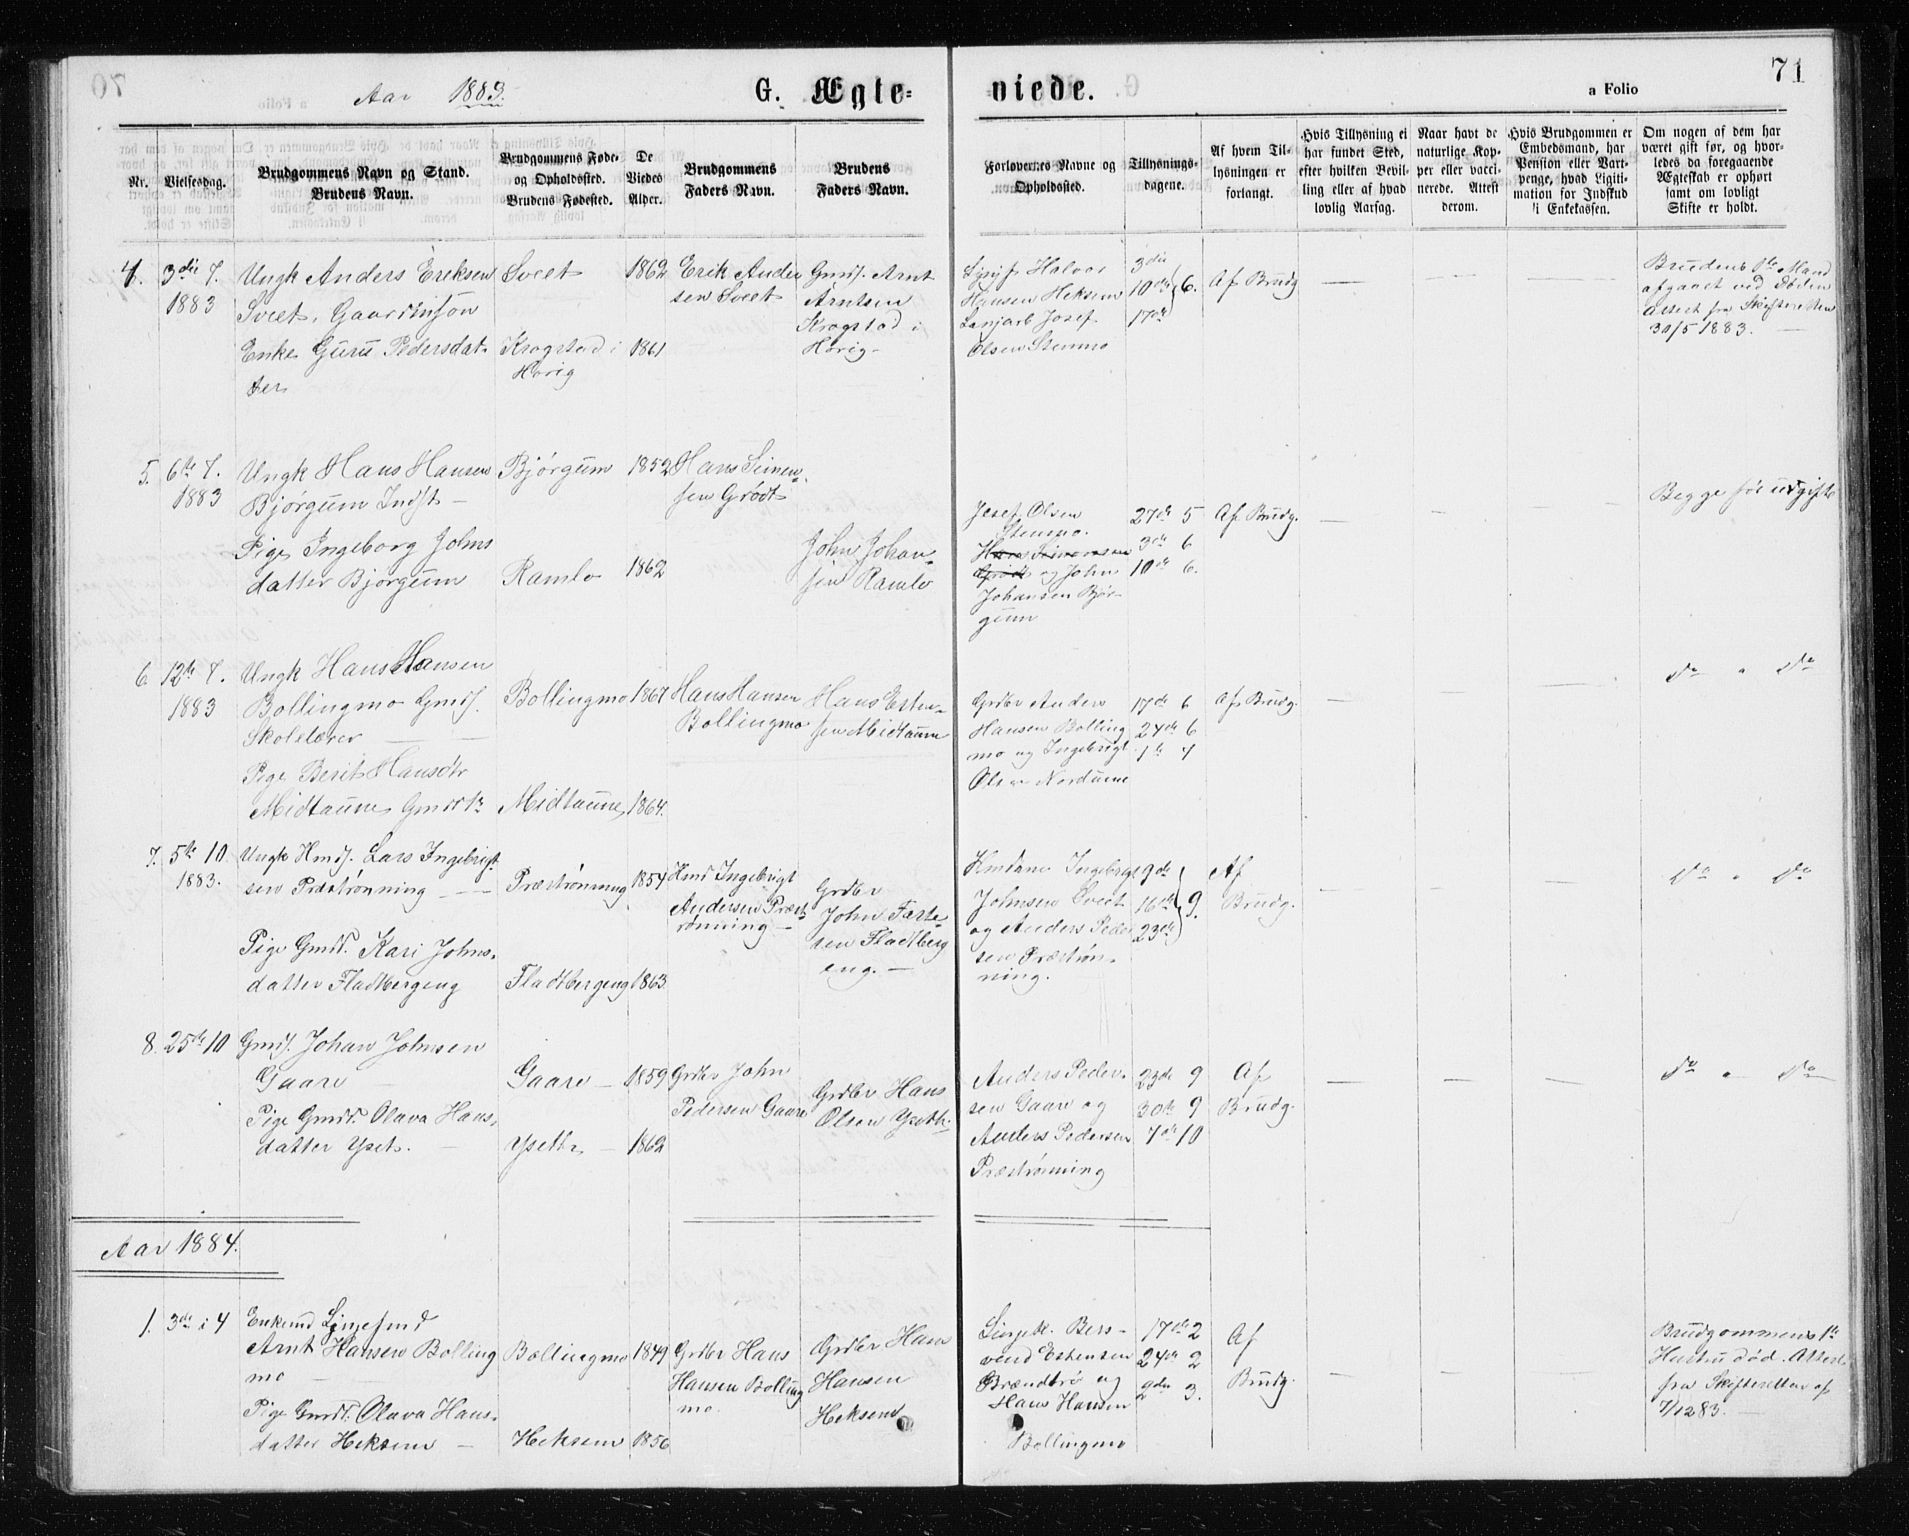 Aar 1883.
G. Ægte=
viede.
a Folio
71
Nr.
Vielsesdag.
Brudgommens Navn og Stand.
Brudens Navn.
Brudgommens Føde-
og Opholdssted.
Brudens Fødested.
De
Viedes
Alder.
Brudgommens
Faders Navn.
Brudens
Faders Navn.
Forlovernes Navne og
Opholdssted.
Tillysnings-
dagene.
Af hvem Til-
lysningen er
forlangt.
Hvis Tillysning ei
har fundet Sted,
efter hvilken Bevil-
ling eller af hvad
lovlig Aarsag.
Naar havt de
naturlige Kop-
per eller vacci-
nerede. Attest
derom.
Hvis Brudgommen er
Embedsmand, har
Pension eller Vart-
penge, hvad Ligiti-
mation for Indskud
i Enkekassen.
Om nogen af dem har
været gift før, og hvor-
ledes da foregaaende
Ægteskab er ophørt
samt om lovligt
Skifte er holdt.
4. 3die 7.
1883
Ungk Anders Eriksen
Sveet. Gaardmsøn
Enke Guru Pedersdat
ter
Sveet
Krogstad i
Hørig
1862
1861
Erik Ander
sen Sveet
Gmd. Arnt
Arntsen
Krogstad i
Hørig
Halvor
Hansen Heksem
Josef
Olsen Stenmo
3die
10de 6.
17de
Af Brudg
Brudens 1ste Mand
afgaaet ved Døden
Attest fra Skifteretten
30/5 1883. —
5. 6te 7.
1883
Ungk Hans Hansen
Bjørgum Indst —
Pige Ingeborg Johns
datter Bjørgum
Bjørgum
Ramlo
1852
1862
Hans Simen-
sen Grødt
John Johan-
sen Ramlo
Josef Olsen
Stenmo.
Hans Simensen
Grødt og John
Johansen Bjør-
gum
27de 5
3de 6
10de 6.
Af Brudg.
Begge før udgifte
6. 12te 7.
1883
Ungk Hans Hansen
Bollingmo Gmds.
Skolelærer
Pige Berit Hansdtr
Midtaune Gmdtr
Bollingmo
Midtaune
1864.
Hans Hansen
Bollingmo
Hans Esten-
sen Midtaune
Grdbr Anders
Hansen Bolling
mo og Ingebrigt
Olsen Nordaune
17de 6
24de 6
1ste 7
Af Brudg.
Do " Do
7. 5te 10.
1883.
Ungk Hmds. Lars Ingebrigt
sen Præstrønning —
Pige Gmdd. Kari Johns-
datter Fladbergeng
Præstrønning
Fladbergeng
1854
1863
Hmd Ingebrigt
Andersen Præst
rønning —
Grdbr
John
sen Fladberg
eng. —
Ingebrigt
Johnsen Sveet
og Anders Peder
sen Præstrøn
ning.
9de
16de 9.
23de
Af
Brudg.
Do " Do
8. 25de 10
Gmds. Johan Johnsen
Gaare
Pige Gmdd. Olava Hans-
datter Yset. —
Gaare —
Ysett —
1859
1862
Grdbr John
Pedersen Gaare
Grdbr Hans
Olsen Yseth.
Anders Peder-
sen Gaare og
Anders Pedersen
Præstrønning
23de 9
30te 9
7de 10
Af
Brudg.
Do " Do
Aar 1884.
1. 3de i 4
Enkemd
Arnt Hansen Bolling
mo
Pige Gmdd. Olava Hans-
datter Heksem —
Bollingmo
Heksem
1849
1856
Grdbr Hans
Hansen Bolling
mo.
Grdbr Hans
Hansen
Heksem
Bers-
vend Estensen
Brændbrø og
Hans Hansen
Bollingmo
17de 2
24de 2
2den 3.
Af
Brudg.
Brudgommens 1te
Hustru død. Attest
fra Skifteretten af
7/12 83. —